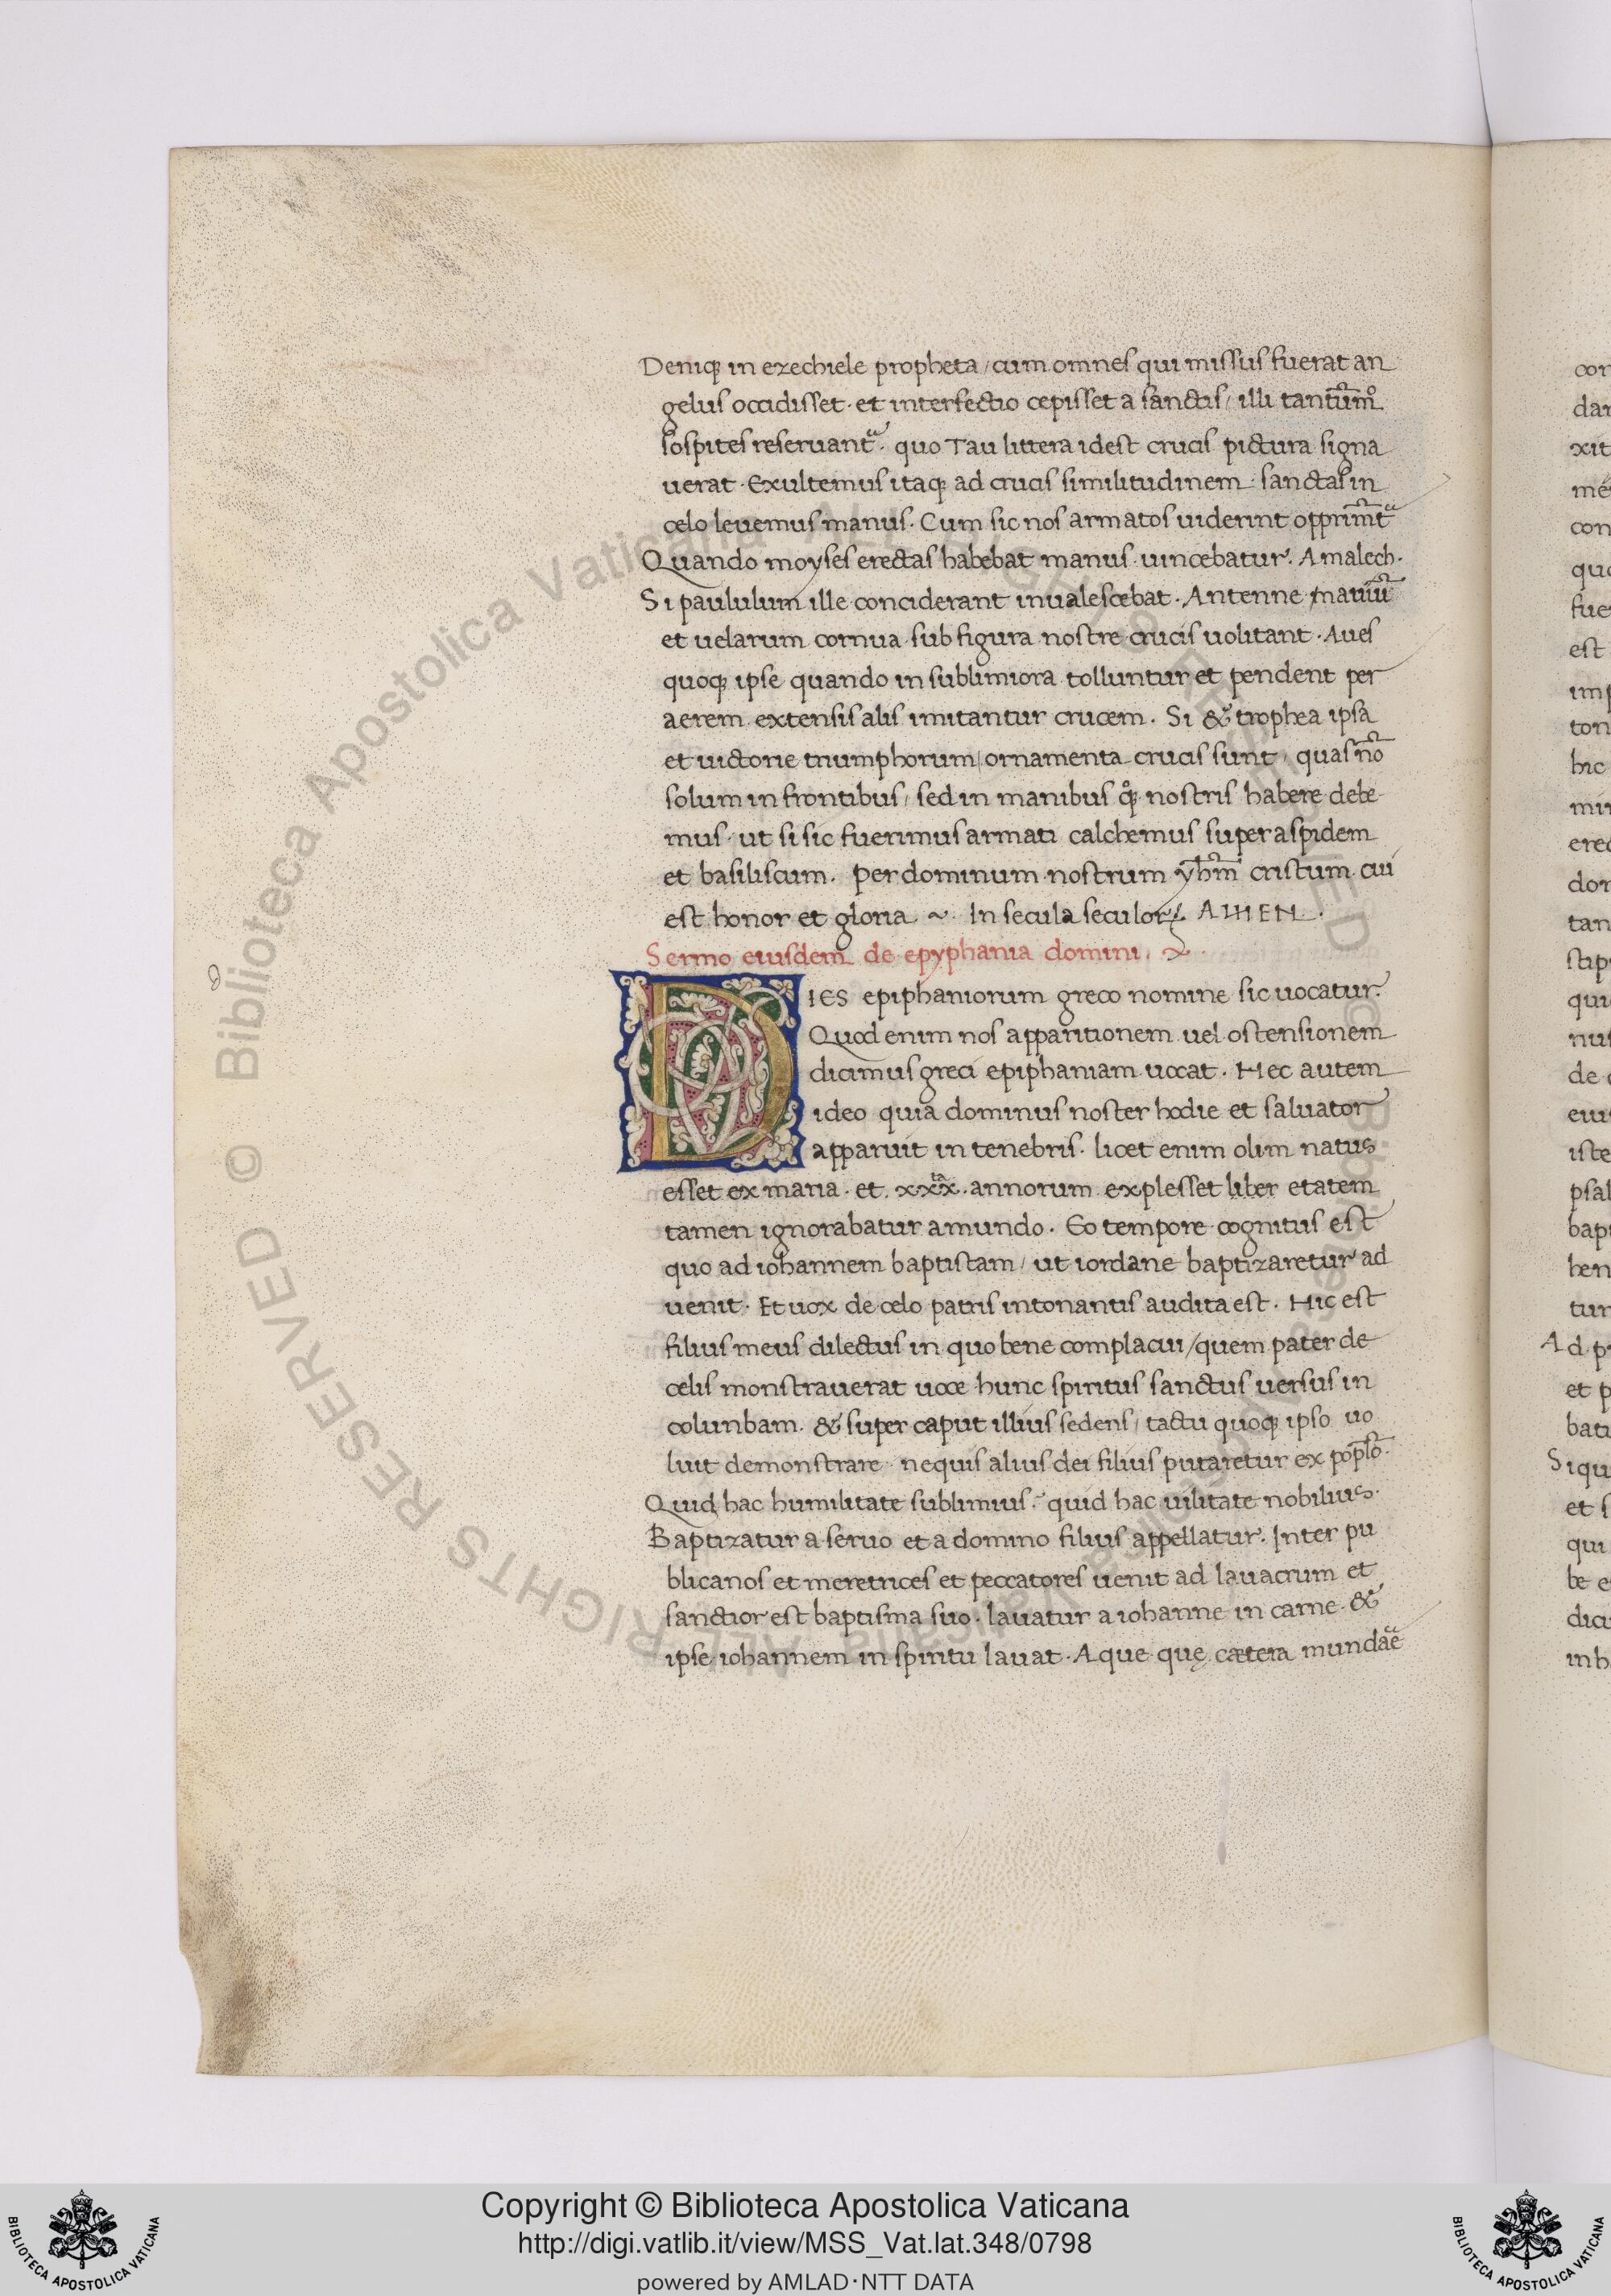 Deniqꝫ in ezechiele propheta / cum omnes qui missus fuerat an
gelus occidisset · et interfectio cepisset a sanctis / illi tantum̄o
sospites reseruant᷑ᵃ · quo Tau littera idest crucis pictura signa
uerat · Exultemus itaqꝫ ad crucis similitudinem · sanctas in
celo leuemus manus · Cum sic nos armatos uiderint opprim̄tᵃ
Quando moyses erectas habebat manus uincebatur · Amalech ·
Si paululum ille conciderant inualescebat · Antenne nauiū
et uelarum cornua sub figura nostre crucis uolitant · Aues
quoqꝫ ipse quando in sublimiora tolluntur et pendent per
aerem extensis alis imitantur crucem · Si & trophea ipsa
et uictorie triumphorum / ornamenta crucis sunt / quas nō
solum in frontibus / sed in manibus qꝫ° nostris habere debe
mus · ut si sic fuerimus armati calchemus super aspidem
et basiliscum · Per dominum nostrum yħm̄ cristum cui
est honor et gloria ~ In secula seculoꝝ · AMEN ·
Sermo eiusdem de epyphania domini ·
DIES epiphaniorum greco nomine sic uocatur ·
Quod enim nos apparitionem uel ostensionem
dicimus greci epiphaniam uocat · Hec autem
ideo quia dominus noster hodie et saluator
apparuit in tenebris · licet enim olim natus
esset ex maria · et · xxx · annorum explesset liber etatem
tamen ignorabatur a mundo · Eo tempore cognitus est
quo ad iohannem baptistam / ut iordane baptizaretur ad
uenit · Et uox de celo patris intonantis audita est · Hic est
filius meus dilectus in quo bene complacui / quem pater de
celis monstrauerat uoce hunc spiritus sanctus uersus in
colunbam · & super caput illius sedens / tactu quoqꝫ ipso uo
luit demonstrare nequis alius dei filius putaretur ex pop̄lo ·
Quid hac humilitate sublimius · quid hac uilitate nobilius ·
Baptizatur a seruo et a domino filius appellatur · Inter pu
blicanos et meretrices et peccatores uenit ad lauacrum et
sanctior est baptisma suo · lauatur a iohanne in carne · &
ipse iohannem in spiritu lauat · Aque quę cætera mundaē
Biblioteca Apostolica Vaticana
© Biblioteca Apostolica Vaticana
ALL RIGHTS RESERVED
Copyright © Biblioteca Apostolica Vaticana
http://digi.vatlib.it/view/MSS_Vat.lat.348/0798
powered by AMLAD·NTT DATA
BIBLIOTECA APOSTOLICA VATICANA
BIBLIOTECA APOSTOLICA VATICANA